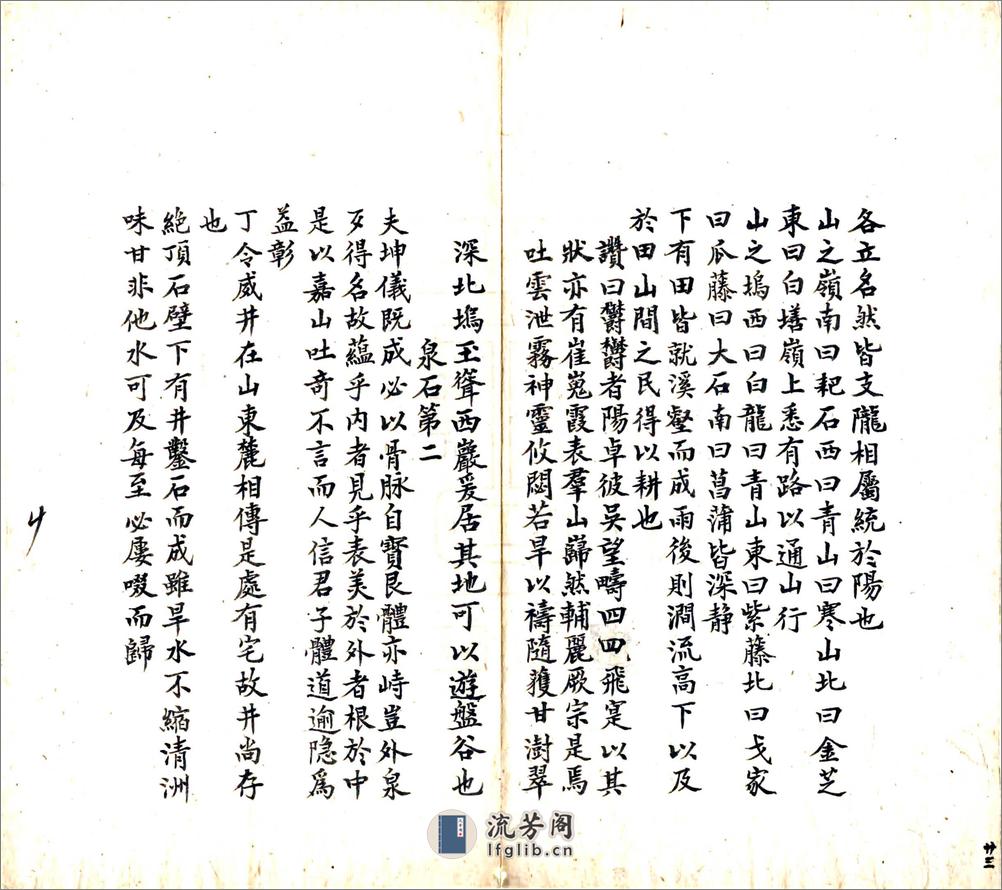 各立名然皆支隴相屬統於陽也
山之嶺南曰耙石西曰青山曰寒山北曰金芝
東曰白墡嶺上悉有路以通山行
山之塢西曰白龍曰青山東曰紫藤北曰戈家
曰瓜藤曰大石南曰菖蒲皆深静
下有田皆就溪壑而成雨後則澗流高下以及
於田山間之民得以耕也
讚曰欝欝者陽卓彼吳望疇四四飛寔以其
狀亦有崔嵬霞表羣山巋然輔麗厥宗是焉
吐雲泄霧神靈攸閟若旱以禱隨獲甘澍翠
深北塢玉聳西巖爰居其地可以遊盤谷也
泉石第二
夫坤儀既成必以骨脉自寳艮體亦峙豈外泉
歹得名故蘊乎内者見乎表美於外者根於中
是以嘉山吐竒不言而人信君子體道逾隐爲
益彰
丁令威井在山東麓相傳是處有宅故井尚存
也
絶頂石壁下有井鑿石而成雖旱水不縮清洲
味甘非他水可及每至必屢啜而歸
廿三
流芳阁
lfglib.cn